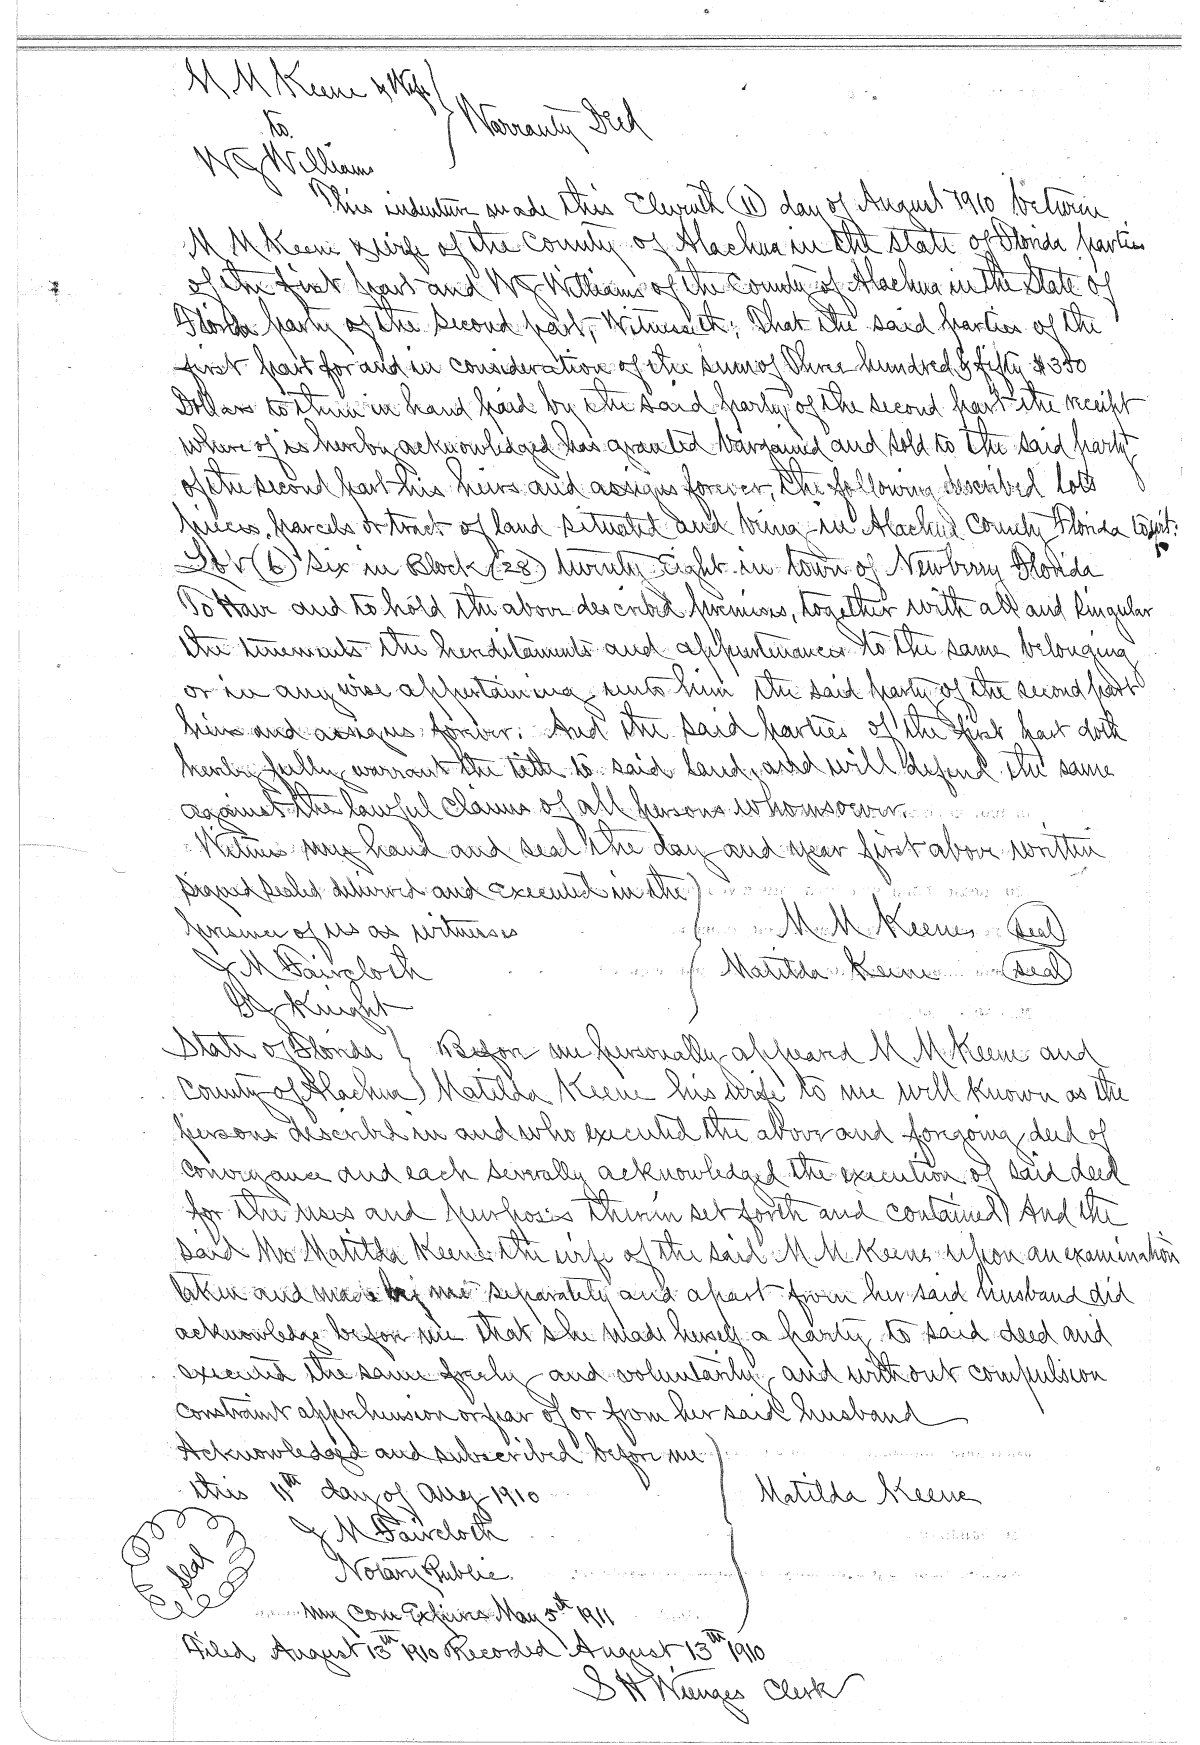 M M Keene & Wife
to
W J Williams
Warranty Deed
This indenture made this Eleventh (11) day of August 1910 between
M M Keene & wife of the County of Alachua in the State of Florida parties
of the first part and W J Williams of the County of Alachua in the State of
Florida party of the second part, Witnesseth; That the said parties of the
first part for and in consideration of the sum of Three hundred & fifty $350
Dollars to them in hand paid by the said party of the second part the receipt
where of is hereby acknowledged has granted bargained and sold to the said party
of the second part his heirs and assigns forever, the following described lots
pieces, parcels or tract of land situated and being in Alachua County Florida towit:
Lot (6) Six in Block (28) twenty Eight in town of Newberry Florida
To Have and to hold the above described premises, together with all and singular
the tenements the hereditaments and appurtenances to the same belonging
or in any wise appertaining unto him the said party of the second part
heirs and assigns forever. And the said parties of the first part doth
hereby fully warrant the title to said land, and will defend the same
against the lawful claims of all persons whomsoever.
Witness my hand and seal the day and year first above written
Signed sealed delivered and executed in the
presence of us as witnesses
M M Keene seal
J M Faircloth
Matilda Keene seal
Knight
State of Florida } Before me personally appeard M M Keene and
County of Alachua } Matilda Keene his wife to me well known as the
persons described in and who executed the above and forgoing deed of
conveyance and each severally acknowledged the execution of said deed
for the uses and purposes therein set forth and contained And the
said Mrs Matilda Keene the wife of the said M M Keene upon an examination
taken and made by me separately and apart from her said husband did
acknowledge before me that she made herself a party to said deed and
executed the same freely and voluntarily and without compulsion
constraint apprehension or fear of or from her said husband
Acknowledged and subscribed before me
this 11th day of Aug 1910
Matilda Keene
J M Faircloth
Seal
Notary Public
My Com Expires May 5th 1911
Filed August 13th 1910 Recorded August 13th 1910
S H Wienges Clerk